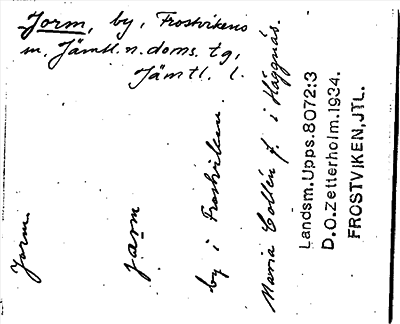 Jorm, by, Frostvikens
m. Jämtl. n. doms. tg,
Jämtl. l.
Jorm
jarm
by i Frostviken.
Maria Collén f. i Häggnäs.
Landsm.Upps.8072:3
D.O.Zetterholm.1934.
FROSTVIKEN,JTL.